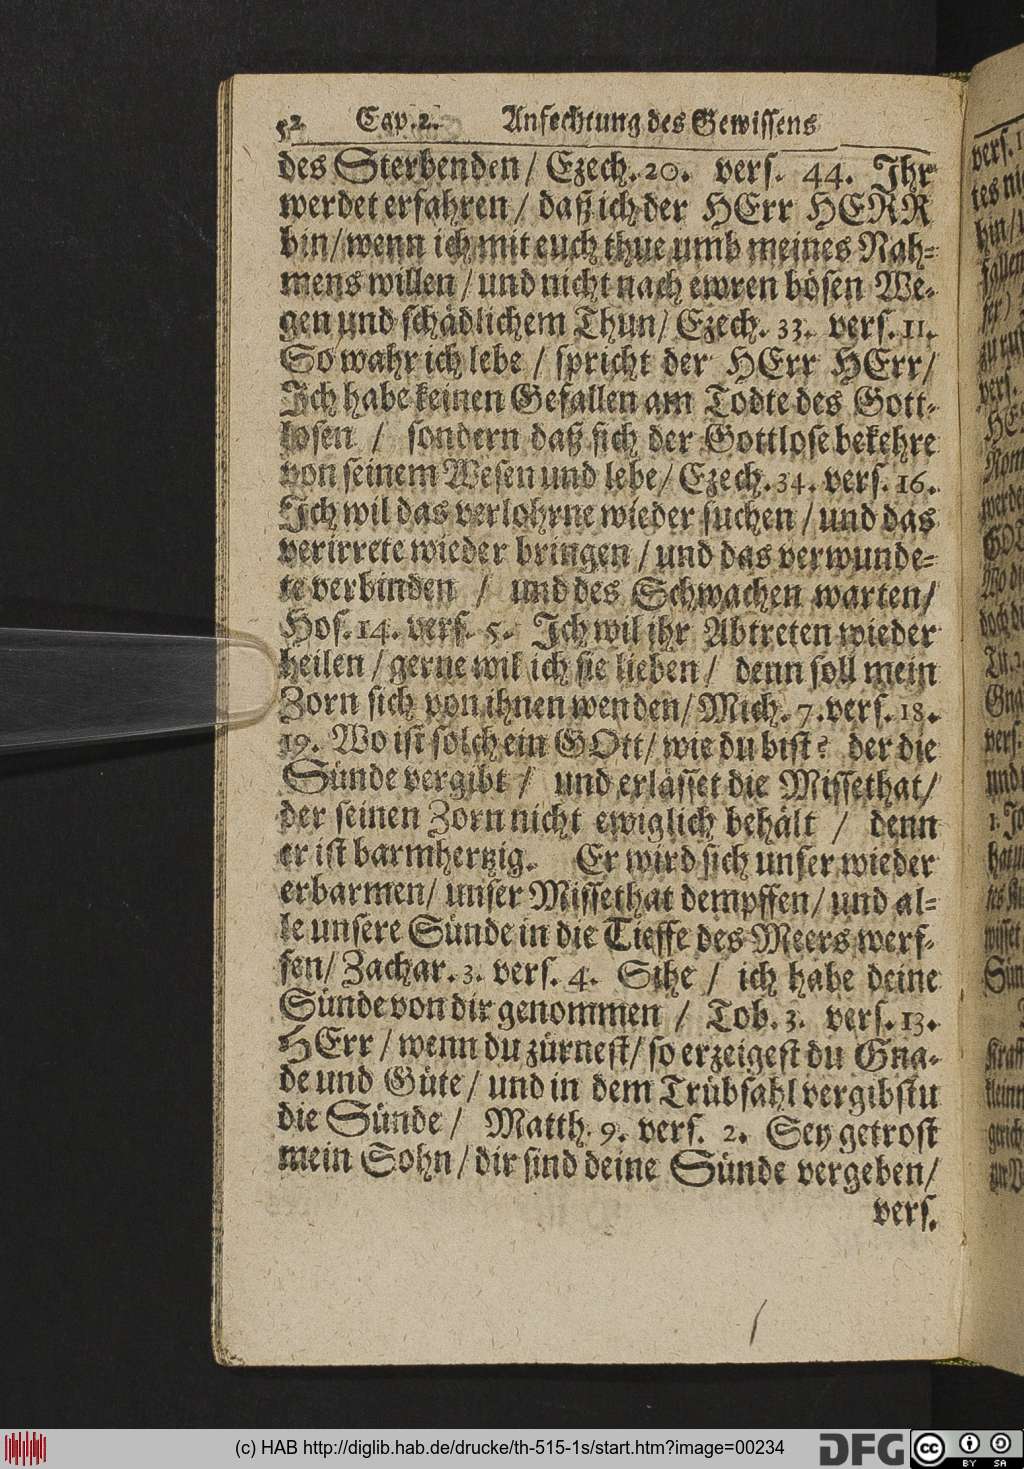 52 Cap. 2. Anfechtung des Gewissens
des Sterbenden / Ezech. 20. vers. 44. Ihr
werdet erfahren / daß ich der HErr HERR
bin / wenn ich mit euch thue umb meines Nah-
mens willen / und nicht nach ewren bösen We-
gen und schädlichem Thun / Ezech. 33. vers. 11.
So wahr ich lebe / spricht der HErr HErr /
Ich habe keinen Gefallen am Todte des Gott-
losen / sondern daß sich der Gottlose bekehre
von seinem Wesen und lebe / Ezech. 34. vers. 16.
Ich wil das verlohrne wieder suchen / und das
verirrete wieder bringen / und das verwunde-
te verbinden / und des Schwachen warten /
Hos. 14. vers. 5. Ich wil ihr Abtreten wieder
heilen / gerne wil ich sie lieben / denn soll mein
Zorn sich von ihnen wenden / Mich. 7. vers. 18.
19. Wo ist solch ein GOtt / wie du bist? der die
Sünde vergibt / und erlässet die Missethat /
der seinen Zorn nicht ewiglich behält / denn
er ist barmhertzig. Er wird sich unser wieder
erbarmen / unser Missethat dempffen / und al-
le unsere Sünde in die Tieffe des Meers werf-
fen / Zachar. 3. vers. 4. Sihe / ich habe deine
Sünde von dir genommen / Tob. 3. vers. 13.
HErr / wenn du zürnest / so erzeigest du Gna-
de und Güte / und in dem Trübsahl vergibstu
die Sünde / Matth. 9. vers. 2. Sey getrost
mein Sohn / dir sind deine Sünde vergeben /
vers.
(c) HAB http://diglib.hab.de/drucke/th-515-1s/start.htm?image=00234
DFG
cc BY SA